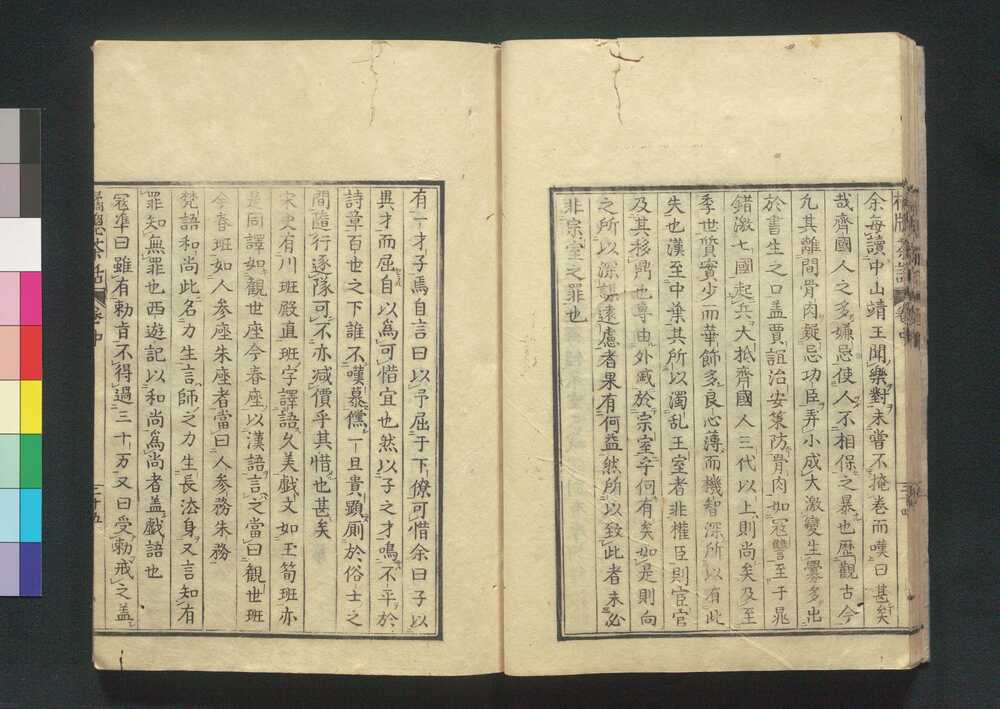 余每讀中山靖王聞樂對未嘗不掩卷而嘆曰甚矣
哉齊國人之多嫌忌使人不相保之暴也歷觀古今
凡其離間骨肉疑忌功臣弄小成大激變生釁多出
於書生之口盖賈誼治安策防骨肉如冦讐至于晁
錯激七國起兵大抵齊國人三代以上則尚矣及至
季世質實少而華飾多良心薄而機智深所以有此
失也漢至中葉其所以濁乱王室者非權臣則宦官
及其移鼎也專由外戚於宗室乎何有矣如是則向
之所以深謀遠慮者果有何益然所以致此者未必
非宗室之罪也
有一才子焉自言曰以予屈于下僚可惜余曰子以
異才而屈自以為可惜宜也然以子之才鳴不平於
詩章百世之下誰不嘆慕儻一旦貴顕厠於俗士之
間隨行逐隊可不亦减價乎其惜也甚矣
宋史有川班殿直班字譯語久美戲文如玉筍班亦
是同譯如觀世座今春座以漢語言之當曰觀世班
今春班如人参座朱座者當曰人参務朱務
梵語和尚此名力生言師之力生長法身又言知有
罪知無罪也西遊記以和尚為尚者盖戲語也
冦準曰雖有勅旨不得過三十万又曰受勅戒之盖
橘窓茶話
卷中
三十五